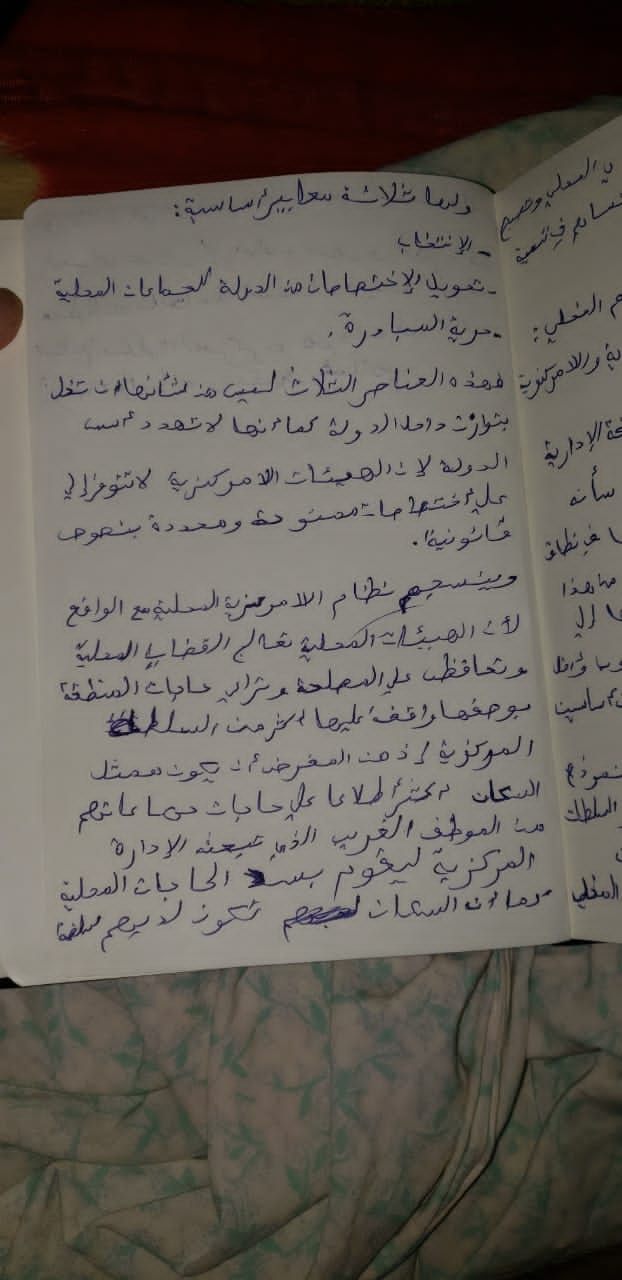 ولها ثلاثة معايير أساسية:
- الإنتخاب
- تحويل الإختصاصات من الدولة للجماعات المحلية
- حرية المبادرة.
فهذه العناصر الثلاث ليس من شأنها أن تخل
بتوازن داخل الدولة كما أنها لا تهدد أسس
الدولة لأن الهيئات اللامركزية لا تتوفر إلا
على إختصاصات ممنوحة ومحددة بنصوص
قانونية.
وينسجم نظام اللامركزية المحلية مع الواقع
لأن الهيئات المحلية تعالج القضايا المحلية
وتحافظ على المصلحة وتراعي حاجات المنطقة
بوصفها واقفة عليها أكثر من السلطة
المركزية إذ من المفروض أن يكون ممثل
السكان أكثر إطلاعا على حاجات جماعاتهم
من الموظف الغريب الذي تبعثه الإدارة
المركزية ليقوم بسد الحاجات المحلية
كما أن السكان تكون لديهم
المحلي
في تنمية
المحلي:
واللامركزية
الإدارية
شأنه
في نطاق
هذا
إلى
أساسين
نموذج
السلطات
المحلي